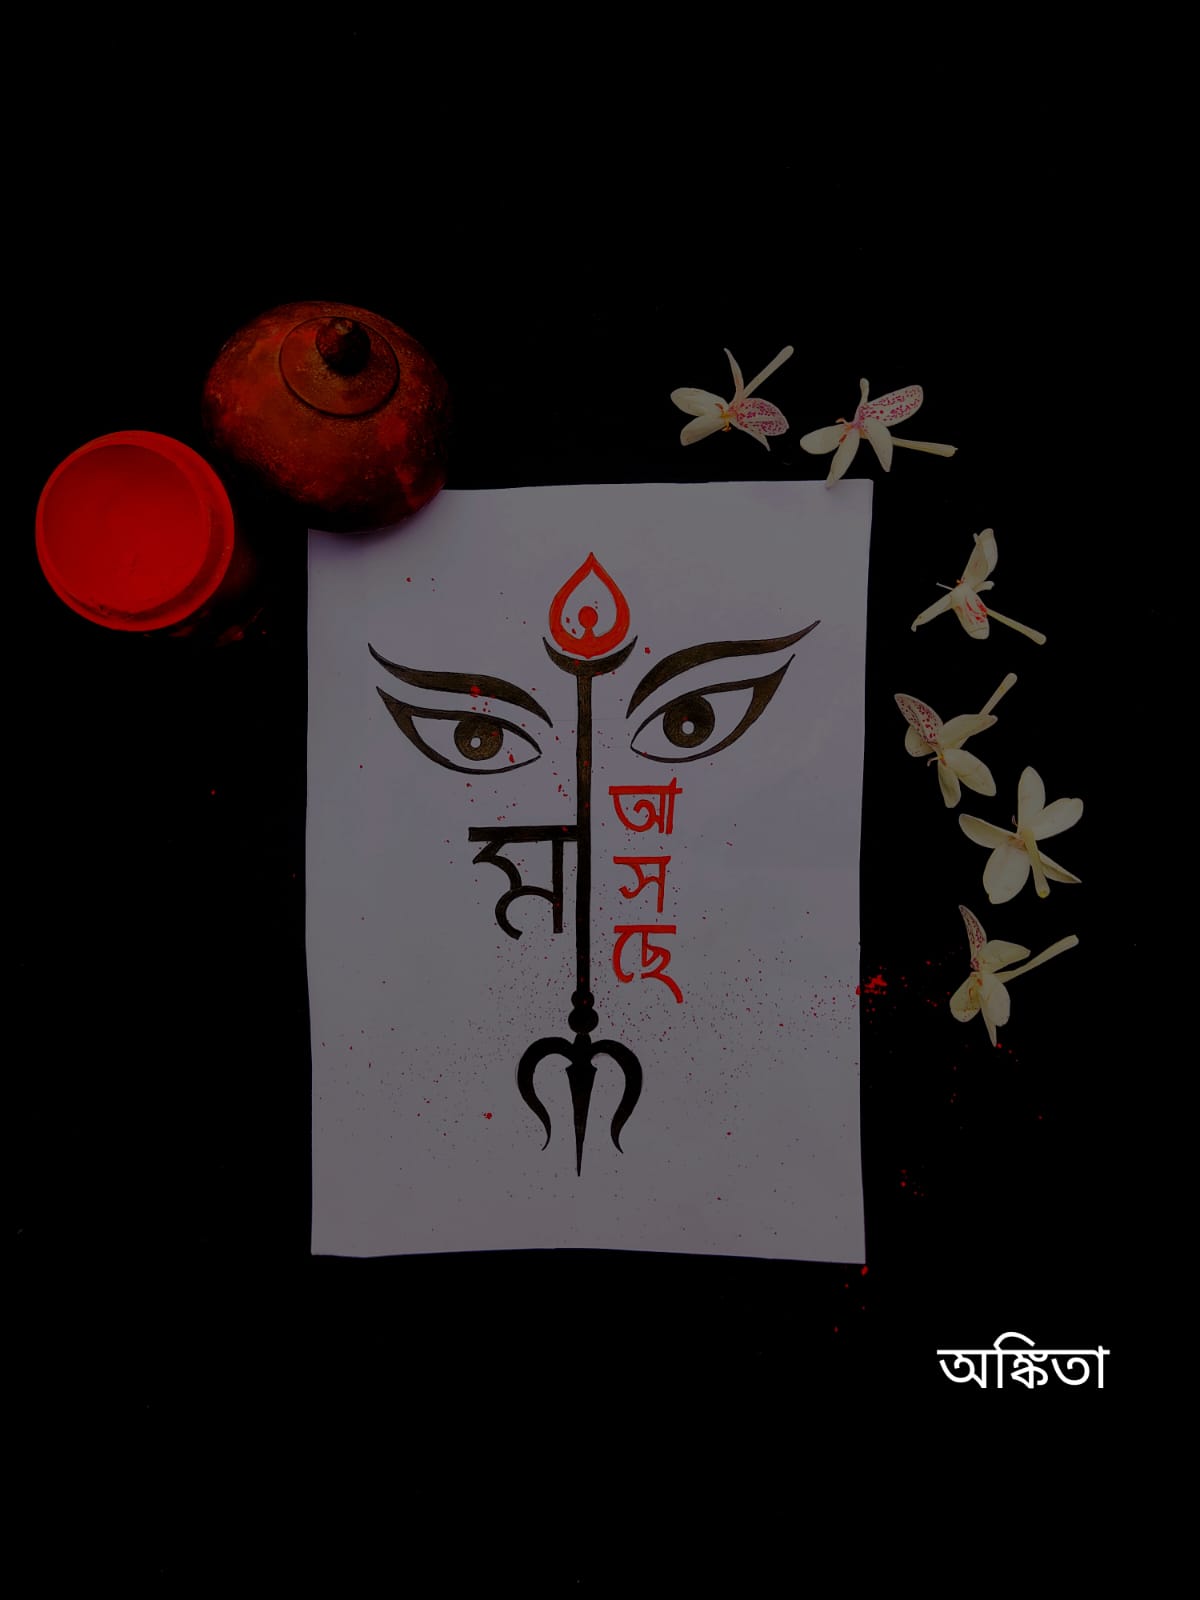 মা
আ
স
ছে
অঙ্কিতা